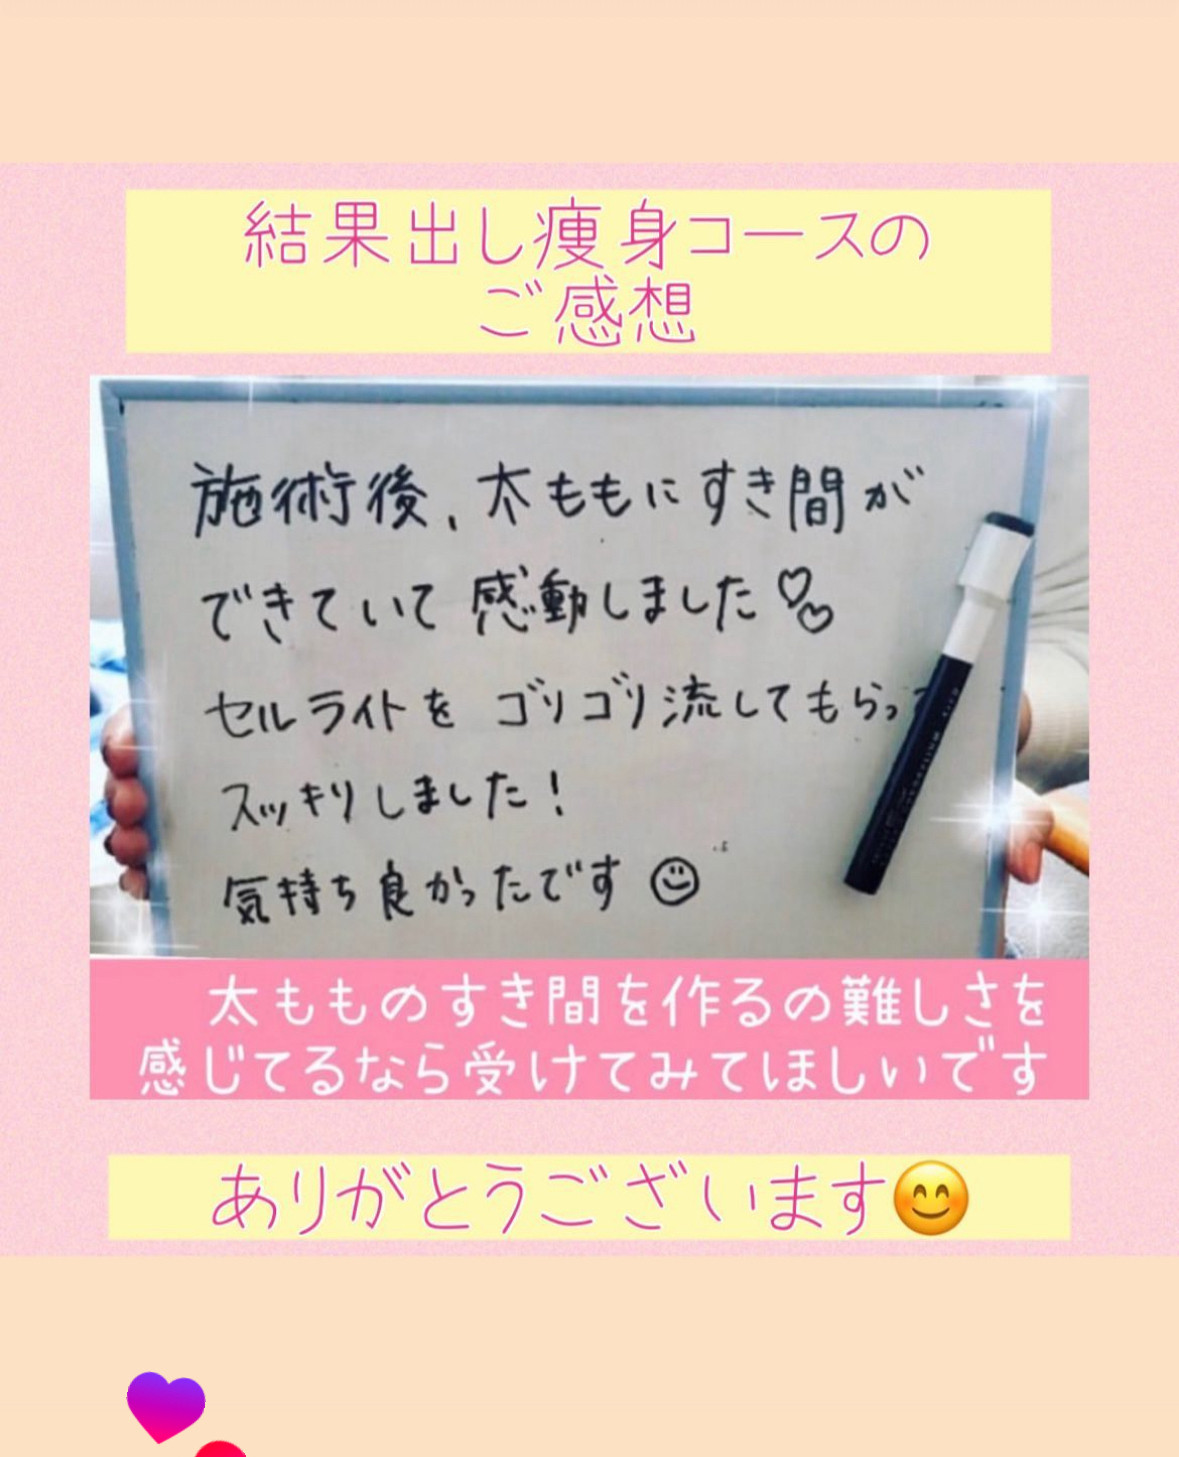 結果出し痩身コースの
ご感想
施術後、太ももにすき間が
できていて感動しました♡♡
セルライトをゴリゴリ流してもらって
スッキリしました！
気持ち良かったです☺
太もものすき間を作るの難しさを
感じてるなら受けてみてほしいです
ありがとうございます😊